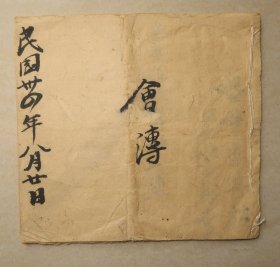 民国卅四年八月廿日
會溥